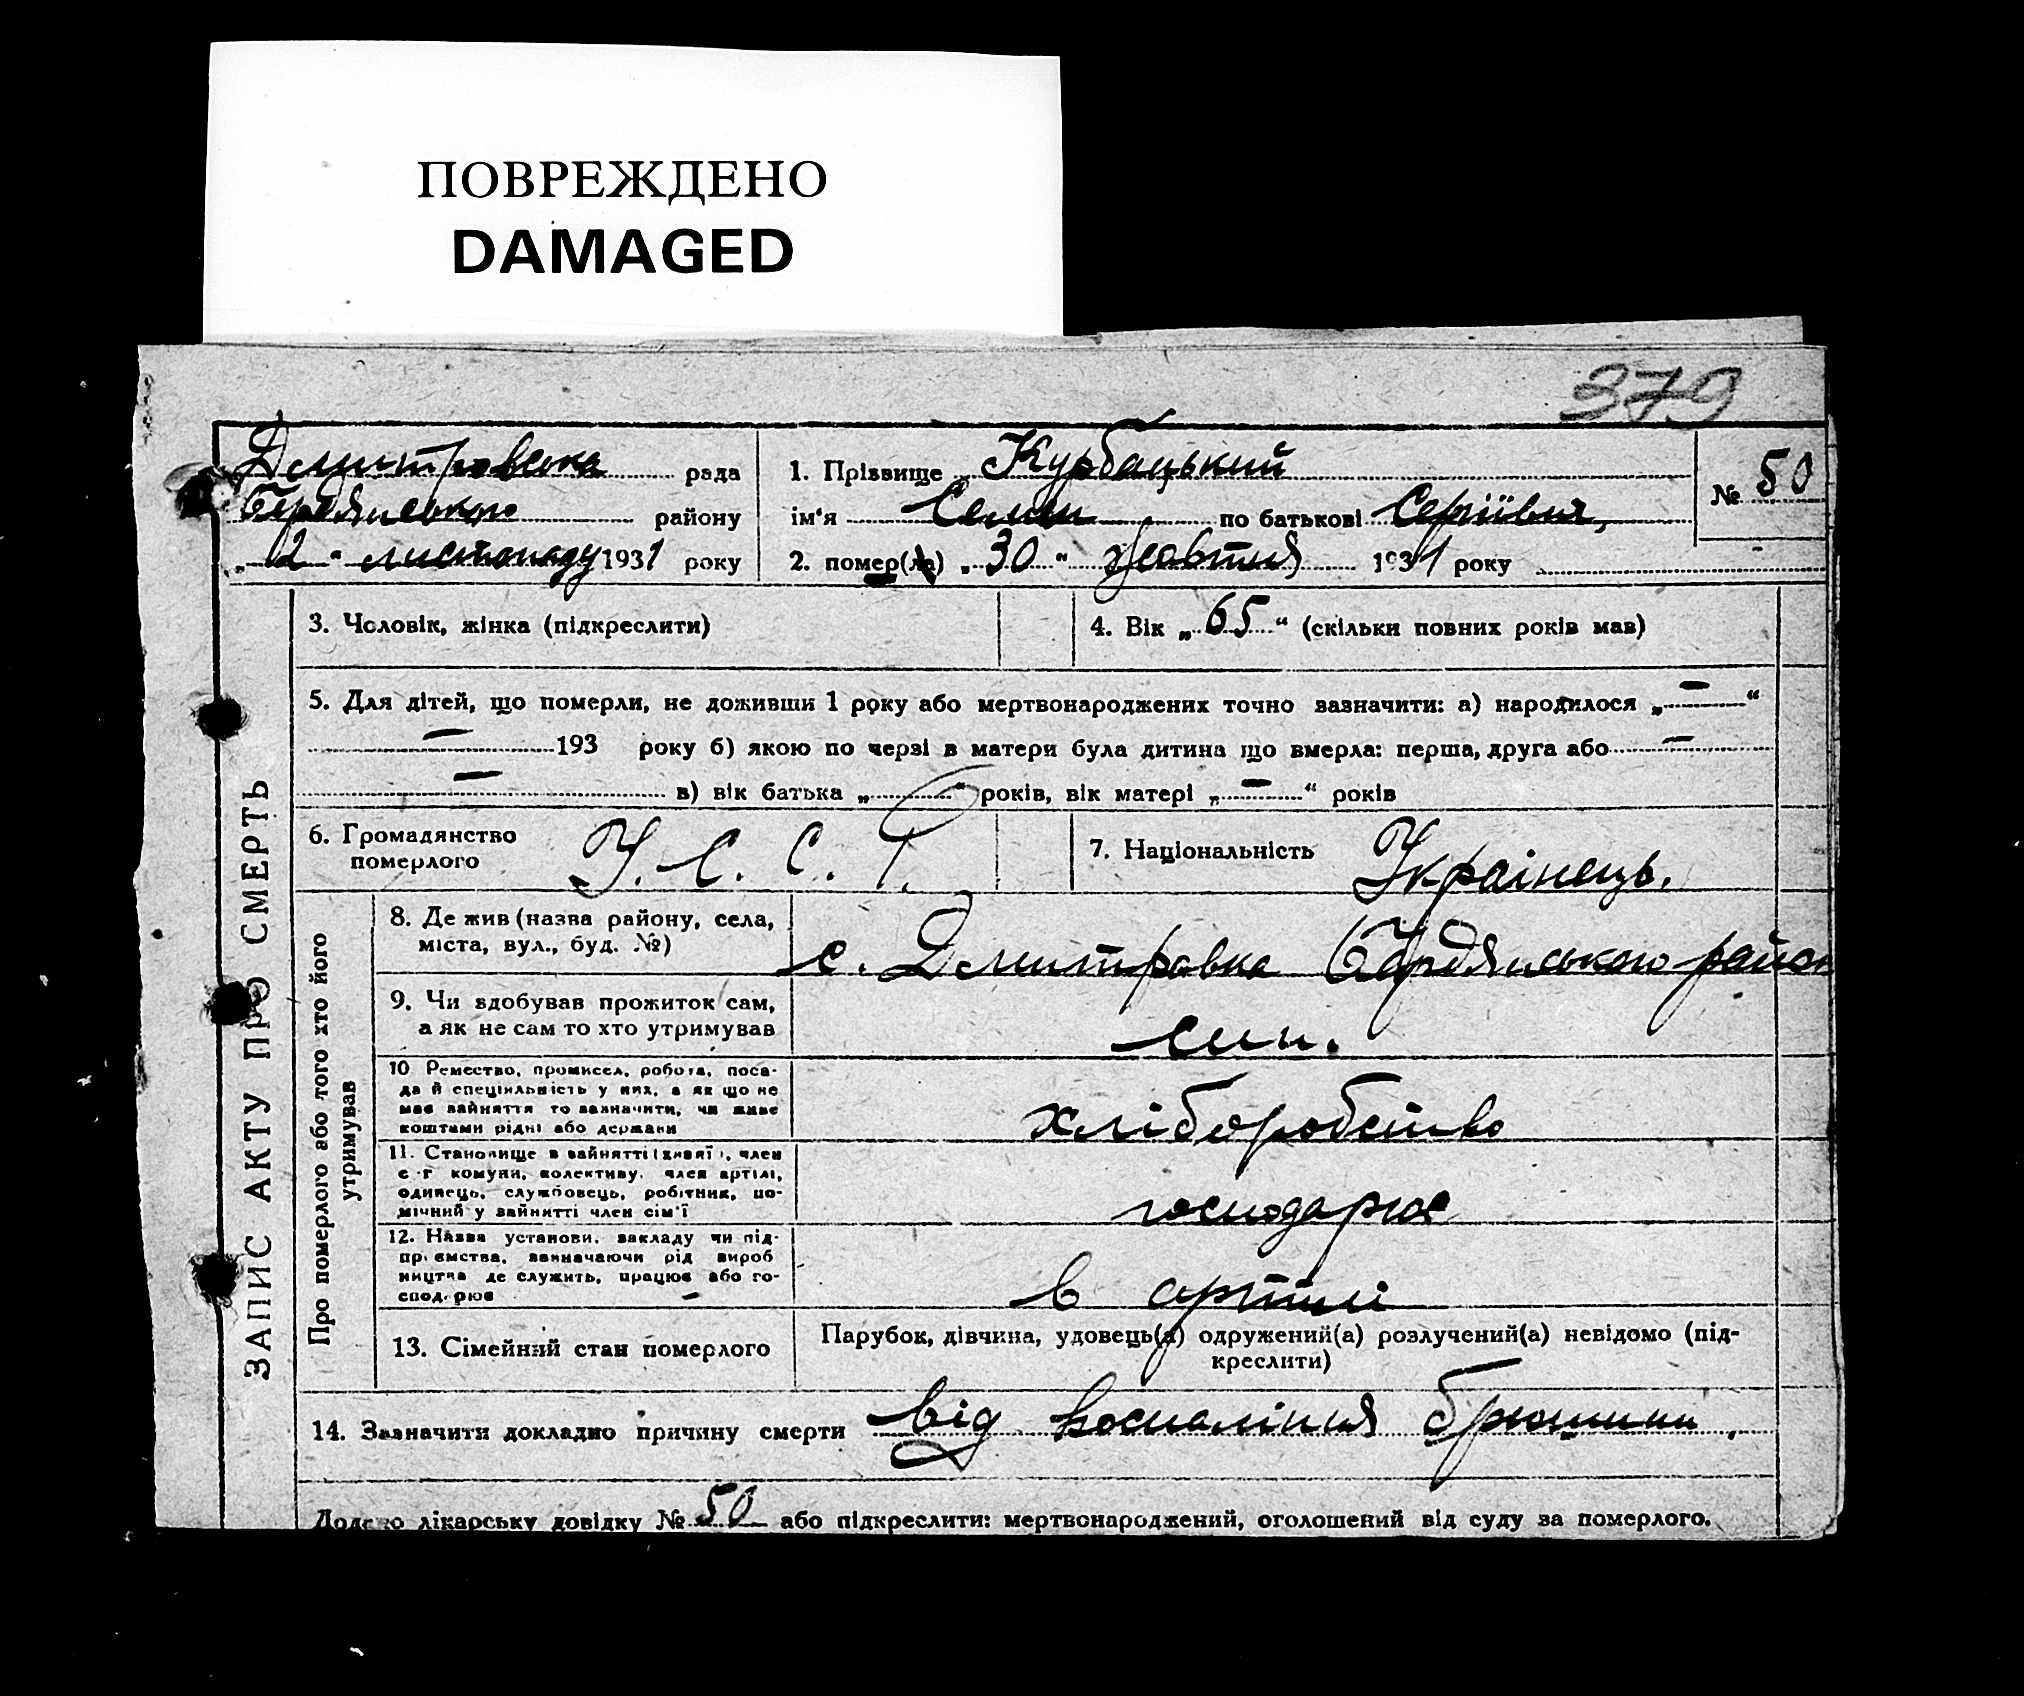 ПОВРЕЖДЕНО
DAMAGED
379
Дмитровська рада
Бердянського району
„ 2 " листопаду 1931 року
1. Прізвище Курбацький
ім'я Семен по батькові Сергіївич,
2. помер(ла) „ 30 " жовтня 1931 року
№ 50
3. Чоловік, жінка (підкреслити)
4. Вік „ 65 " (скільки повних років мав)
5. Для дітей, що померли, не доживши 1 року або мертвонароджених точно зазначити: а) народилося „ — "
— 193 року б) якою по черзі в матери була дитина що вмерла: перша, друга або —
— в) вік батька „ " років, вік матері „ — " років
6. Громадянство
померлого У. С. С. Р.
7. Національність Українець.
ЗАПИС АКТУ ПРО СМЕРТЬ
Про померлого або того хто його
утримував
8. Де жив (назва району, села,
міста, вул., буд. №)
с. Дмитровка Бердянського район
9. Чи здобував прожиток сам,
а як не сам то хто утримував
син.
10 Ремество, промисел, робота, поса-
да й спеціяльність у них, а як що не
має зайняття то зазначити, чи живе
коштами рідні або держави
хліборобство
11. Становище в зайнятті (хазяї), член
с-г комуни, колективу, член артілі,
одинець, службовець, робітник, по-
мічний у зайнятті член сім'ї
господарює
12. Назва установи, закладу чи під-
приємства, зазначаючи рід вироб
ництва де служить, працює або го-
сподарює
в артілі
13. Сімейний стан померлого
Парубок, дівчина, удовець(а) одружений(а) розлучений(а) невідомо (під-
креслити)
14. Зазначити докладно причину смерти від воспаління брюшини.
Додано лікарську довідку № 50 або підкреслити: мертвонароджений, оголошений від суду за померлого.